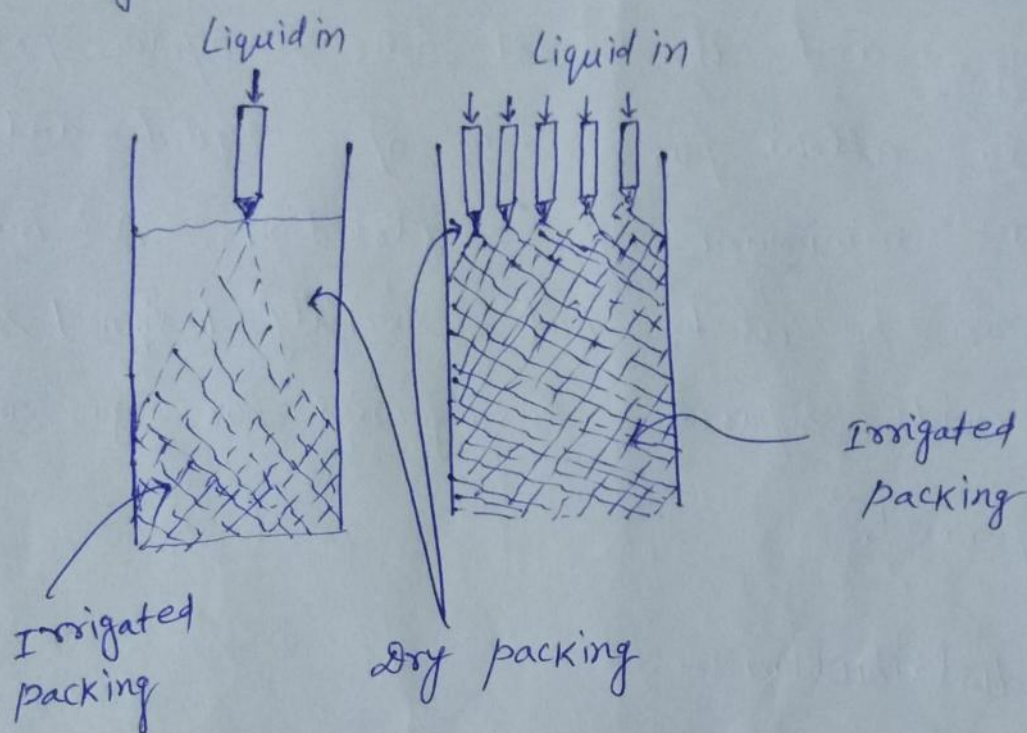 Liquid in
Liquid in
Irrigated
packing
Irrigated
packing
Dry packing